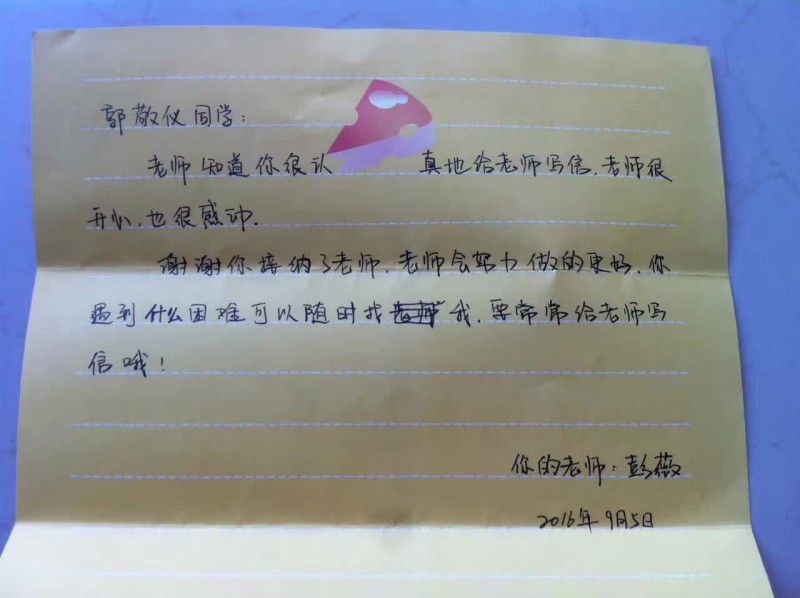 郭敬仪同学:
老师知道你很认真地给老师写信.老师很
开心.也很感动.
谢谢你接纳了老师.老师会努力做的更好.你
遇到什么困难可以随时找我.要常常给老师写
信哦!
你的老师:彭薇
2016年9月5日